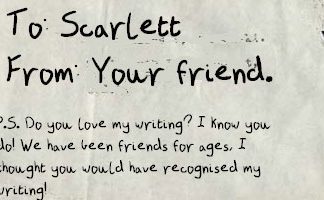 To: Scarlett
From: Your friend.
P.S. Do you love my writing? I know you
do! We have been friends for ages, I
thought you would have recognised my
writing!